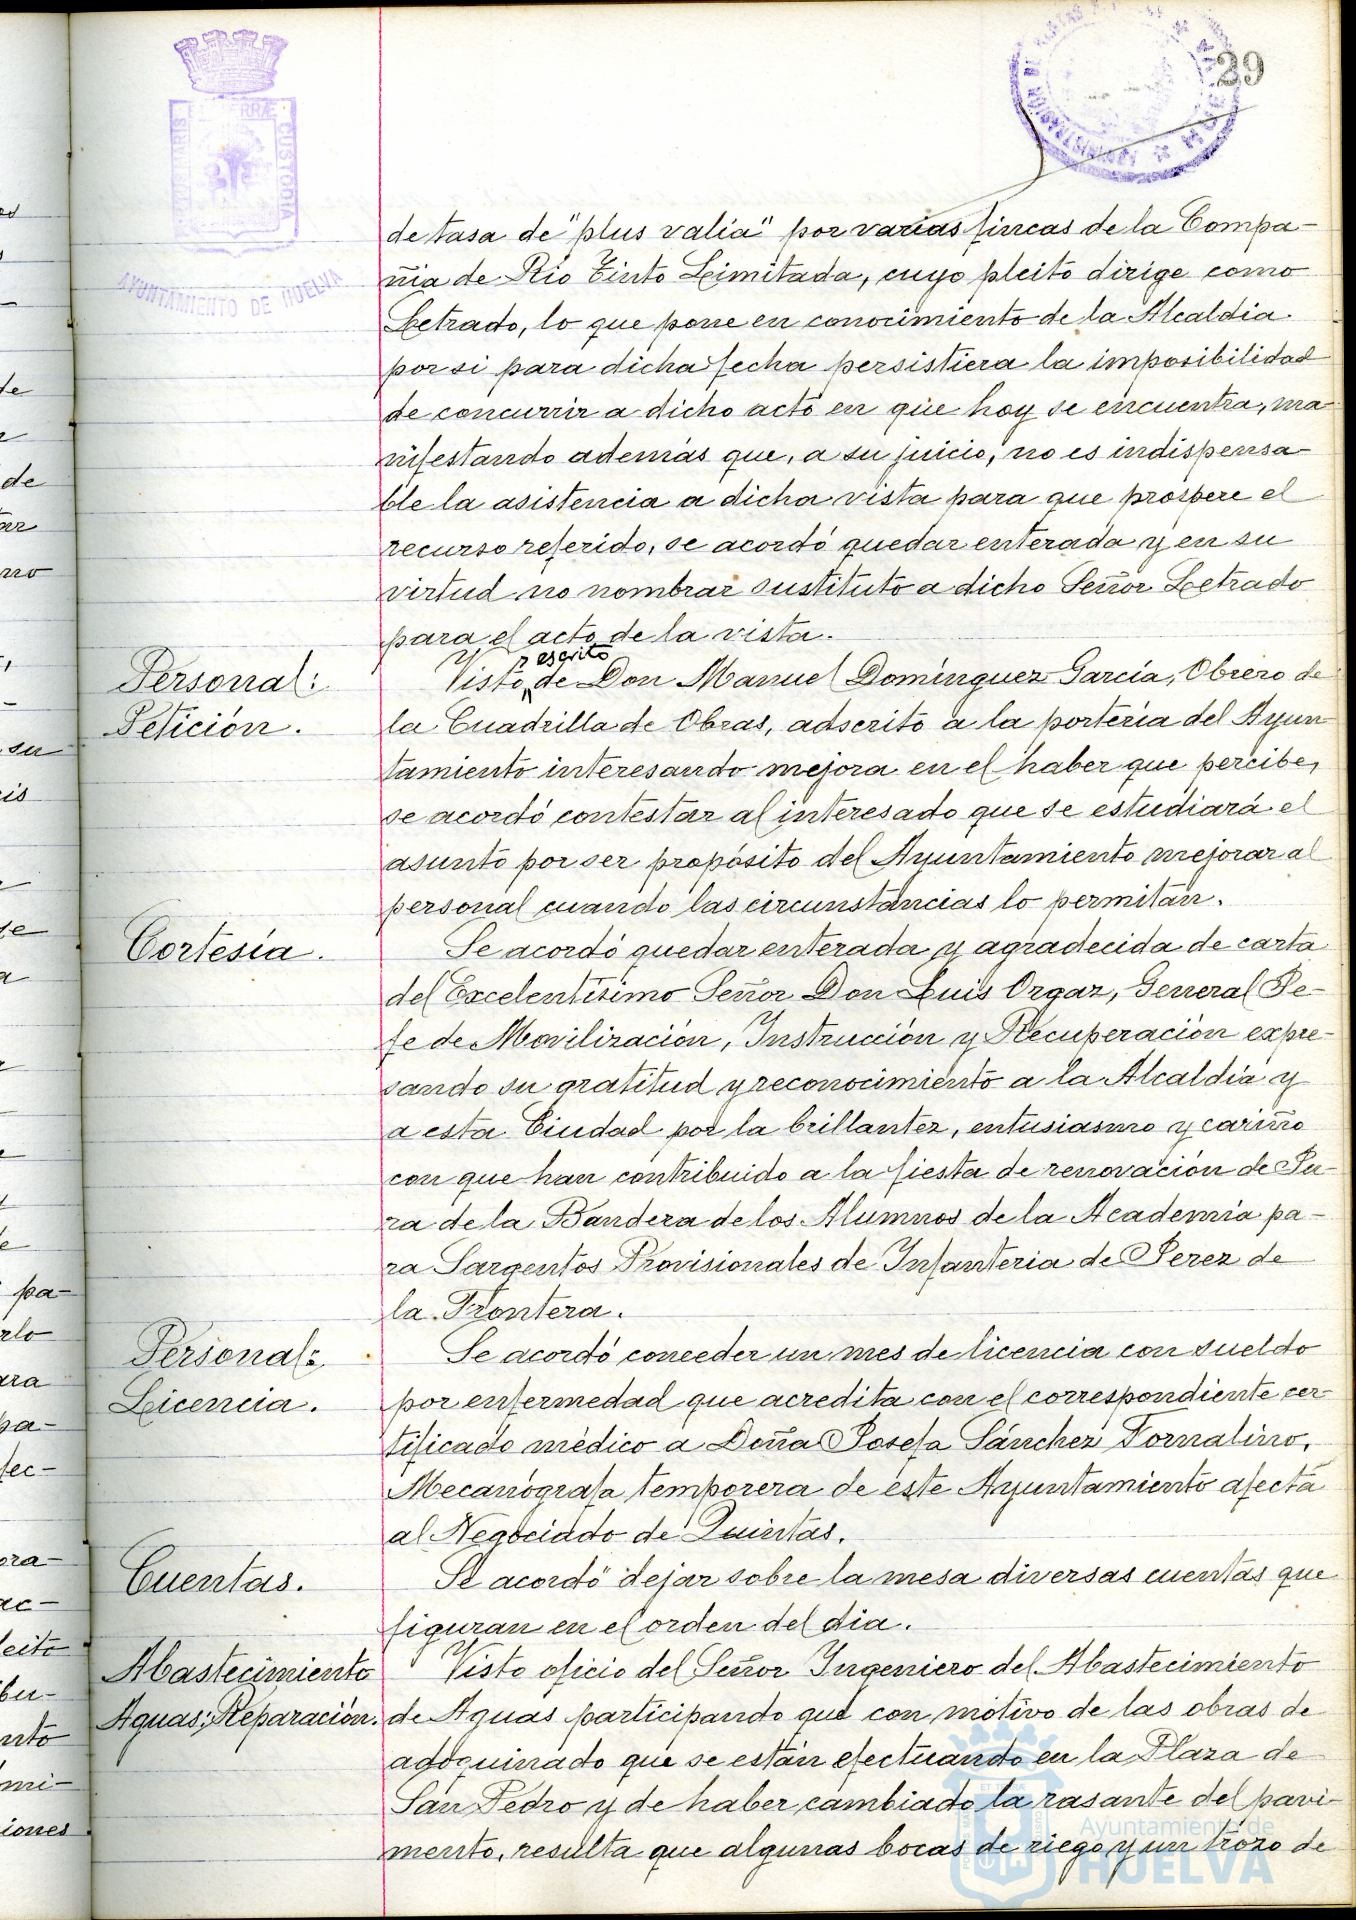 29
AYUNTAMIENTO DE HUELVA
de tasa de "plus valía" por varias fincas de la Compa-
ñia de Rio Tinto Limitada, cuyo pleito dirige como
Letrado, lo que pone en conocimiento de la Alcaldia
por si para dicha fecha persistiera la imposibilidad
de concurrir a dicho acto en que hoy se encuentra, ma-
nifestando además que, a su juicio, no es indispensa-
ble la asistencia a dicha vista para que prospere el
recurso referido, se acordó quedar enterada y en su
virtud no nombrar sustituto a dicho Señor Letrado
para el acto de la vista.
Personal:
Petición.
Visto escrito de Don Manuel Domínguez García, Obrero de
la Cuadrilla de Obras, adscrito a la portería del Ayun-
tamiento interesando mejora en el haber que percibe,
se acordó contestar al interesado que se estudiará el
asunto por ser propósito del Ayuntamiento mejorar al
personal cuando las circunstancias lo permitan.
Cortesía.
Se acordó quedar enterada y agradecida de carta
del Excelentísimo Señor Don Luis Orgaz, General Je-
fe de Movilización, Instrucción y Recuperación expre-
sando su gratitud y reconocimiento a la Alcaldía y
a esta Ciudad por la brillantez, entusiasmo y cariño
con que han contribuido a la fiesta de renovación de Ju-
ra de la Bandera de los Alumnos de la Academia pa-
ra Sargentos Provisionales de Infanteria de Jerez de
la Frontera.
Personal:
Licencia.
Se acordó conceder un mes de licencia con sueldo
por enfermedad que acredita con el correspondiente cer-
tificado médico a Doña Josefa Sánchez Tornalino,
Mecanógrafa temporera de éste Ayuntamiento afecta
al Negociado de Quintas.
Cuentas.
Se acordó dejar sobre la mesa diversas cuentas que
figuran en el orden del dia.
Abastecimiento
Aguas: Reparación.
Visto oficio del Señor Ingeniero del Abastecimiento
de Aguas participando que con motivo de las obras de
adoquinado que se están efectuando en la Plaza de
San Pedro y de haber cambiado la rasante del pavi-
mento, resulta que algunas bocas de riego y un trozo de
Ayuntamiento de
HUELVA